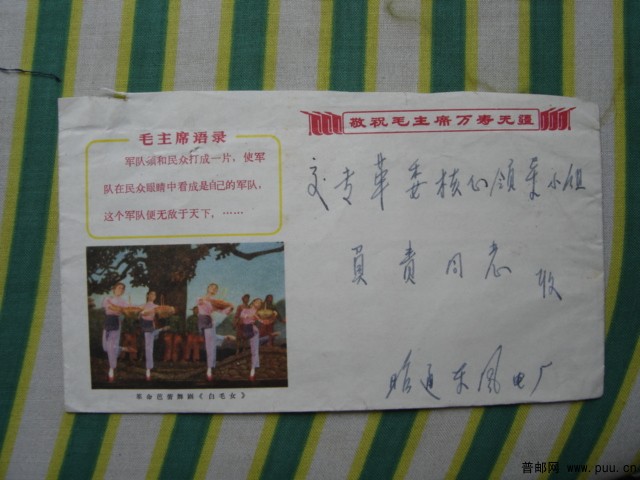 毛主席语录
军队须和民众打成一片，使军
队在民众眼睛中看成是自己的军队，
这个军队便无敌于天下，……
革命芭蕾舞剧《白毛女》
敬祝毛主席万寿无疆
交专革委核心领导小组
負责同志 收
昭通东风电厂
普邮网 www.puu.cn